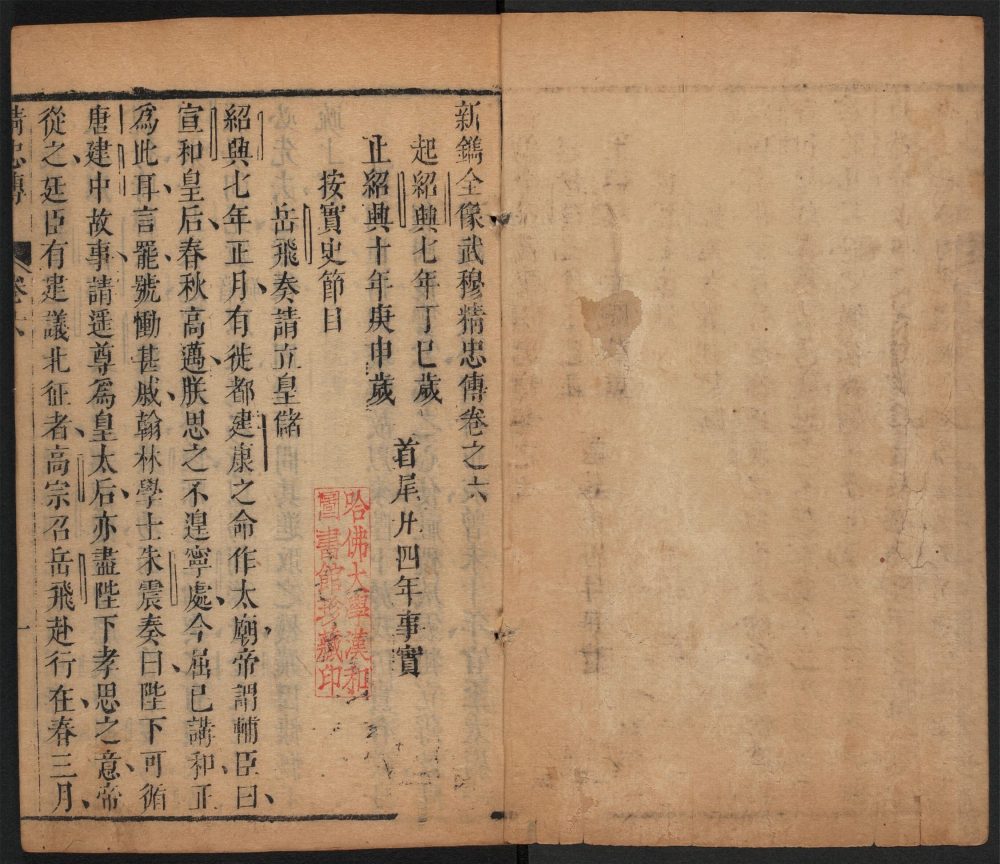 新鐫全像武穆精忠傳卷之六
起紹興七年丁巳歲
止紹興十年庚申歲
首尾廾四年事實
按實史節目
岳飛奏請立皇儲
紹興七年正月有徙都建康之命作太廟帝謂輔臣曰
宣和皇后春秋高邁朕思之不遑寧處今屈已講和正
爲此耳言罷號慟甚戚翰林學士朱震奏曰陛下可循
唐建中故事請遥尊爲皇太后亦盡陛下孝思之意帝
從之廷臣有建議北征者高宗召岳飛赴行在春三月
精忠傳
卷六
一
哈佛大學漢和
圖書館珍藏印